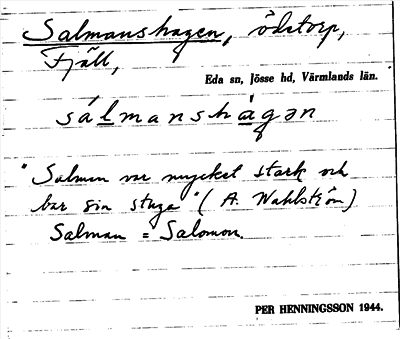 Salmanshagen, ödetorp,
Fjäll,
Eda sn, Jösse hd, Värmlands län.
sálmanshàgən
"Salman var mycket stark och
bar sin stuga" (A. Wahlström)
Salman = Salomon.
PER HENNINGSSON 1944.